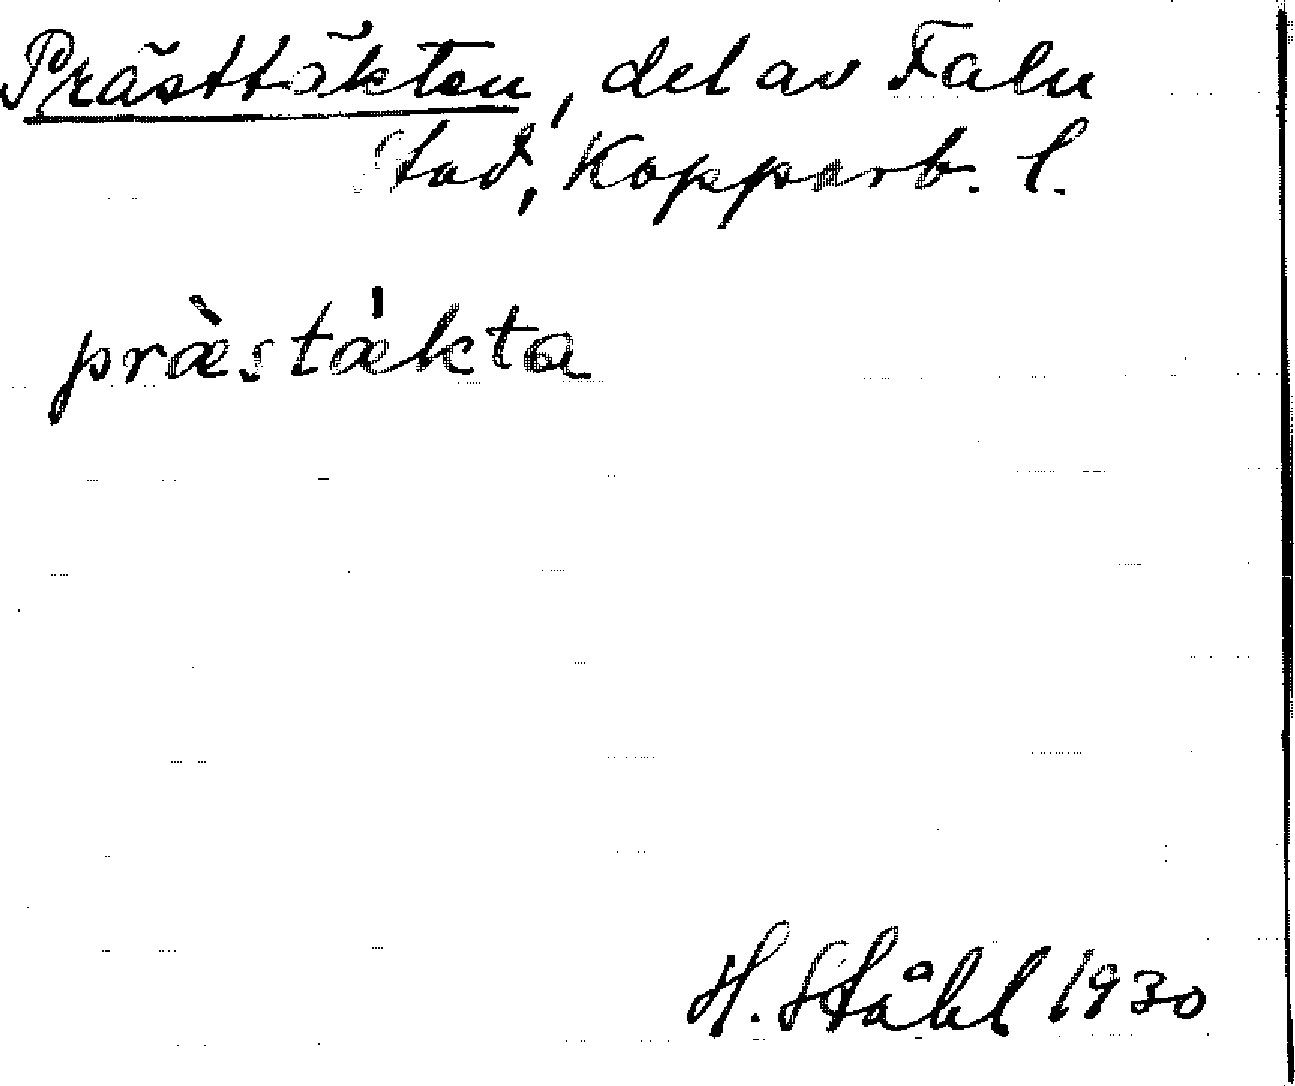 Prästtäkten, del av Falu
Stad, Kopparb. l.
præ̀stækta
H. Ståhl 1930